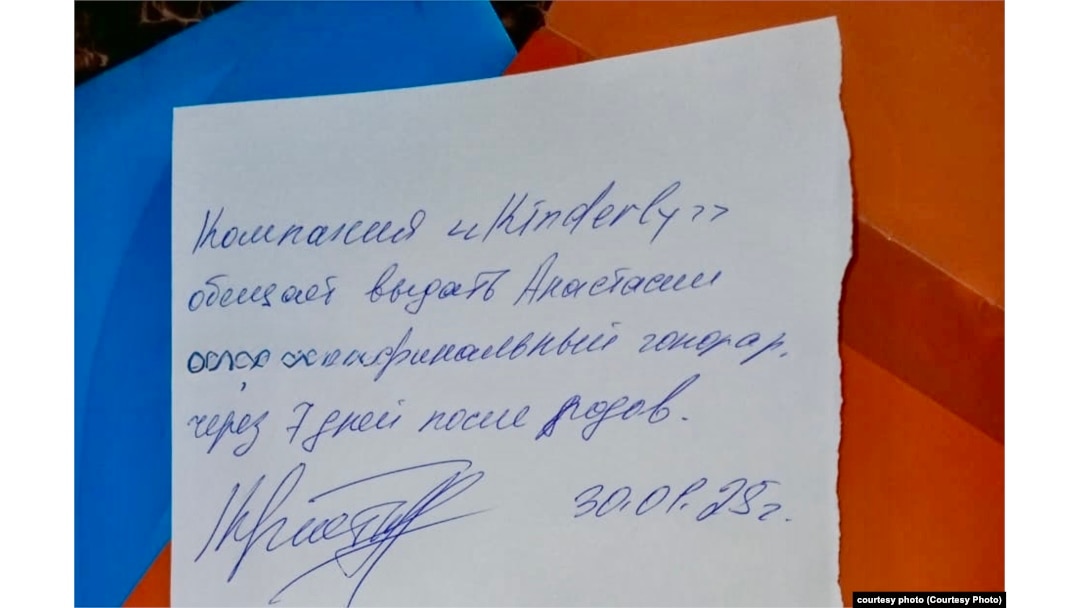 Компания «Kinderly»
обещает выдать Анастасии
финальный гонорар,
через 7 дней после родов.
30.01.25г.
courtesy photo (Courtesy Photo)